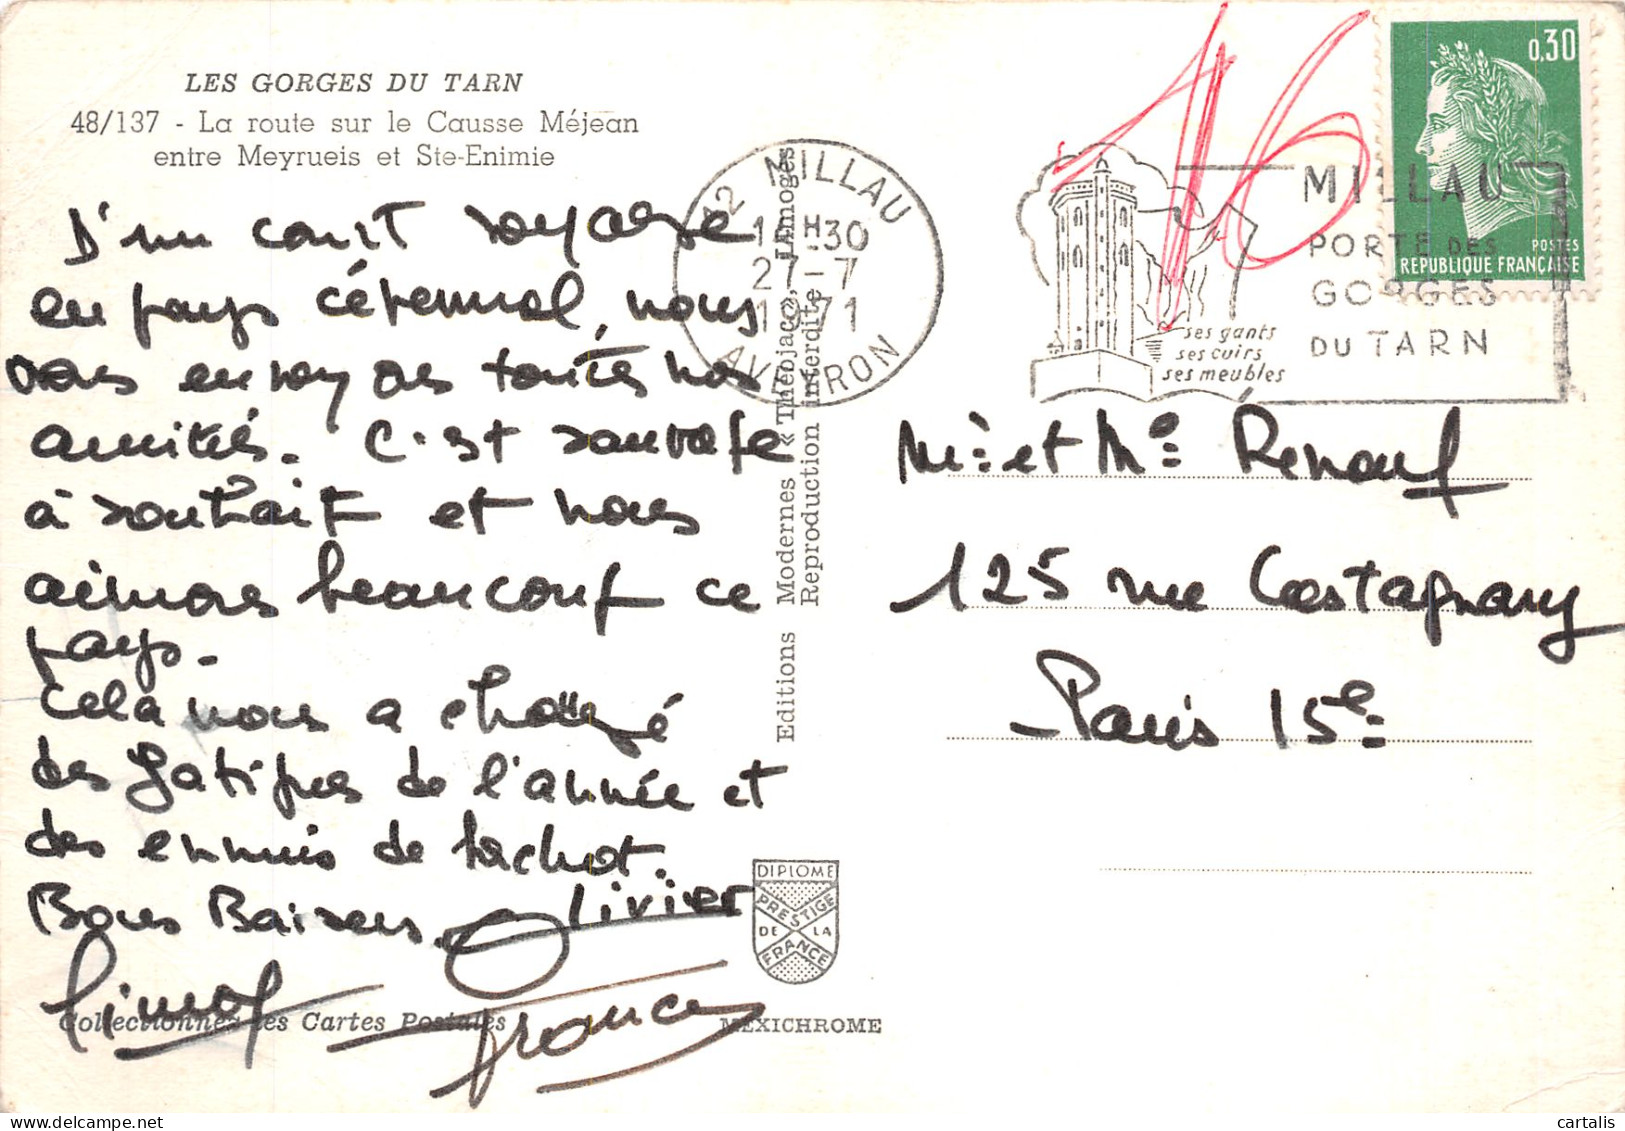 LES GORGES DU TARN
48/137 - La route sur le Causse Méjean
entre Meyrueis et Ste-Enimie
D'un court voyage
en pays cévennol, nous
vous envoyons toutes nos
amitiés. C'est sauvage
à souhait et nous
aimons beaucoup ce
pays.
Cela nous a changé
des fatigues de l'année et
des ennuis de
Bons Baisers. Olivier
France
Collectionnez les Cartes Postales
Editions Modernes « Théojac », Limoges
Reproduction interdite
DIPLOME
PRESTIGE
DE LA
FRANCE
MEXICHROME
12 MILLAU
30
27-7
1971
AVEYRON
16
ses gants
ses cuirs
ses meubles
MILLAU
PORTE DES
GORGES
DU TARN
0,30
POSTES
RÉPUBLIQUE FRANÇAISE
Mr et Me Renouf
125 rue Castagnary
Paris 15e
cartalis